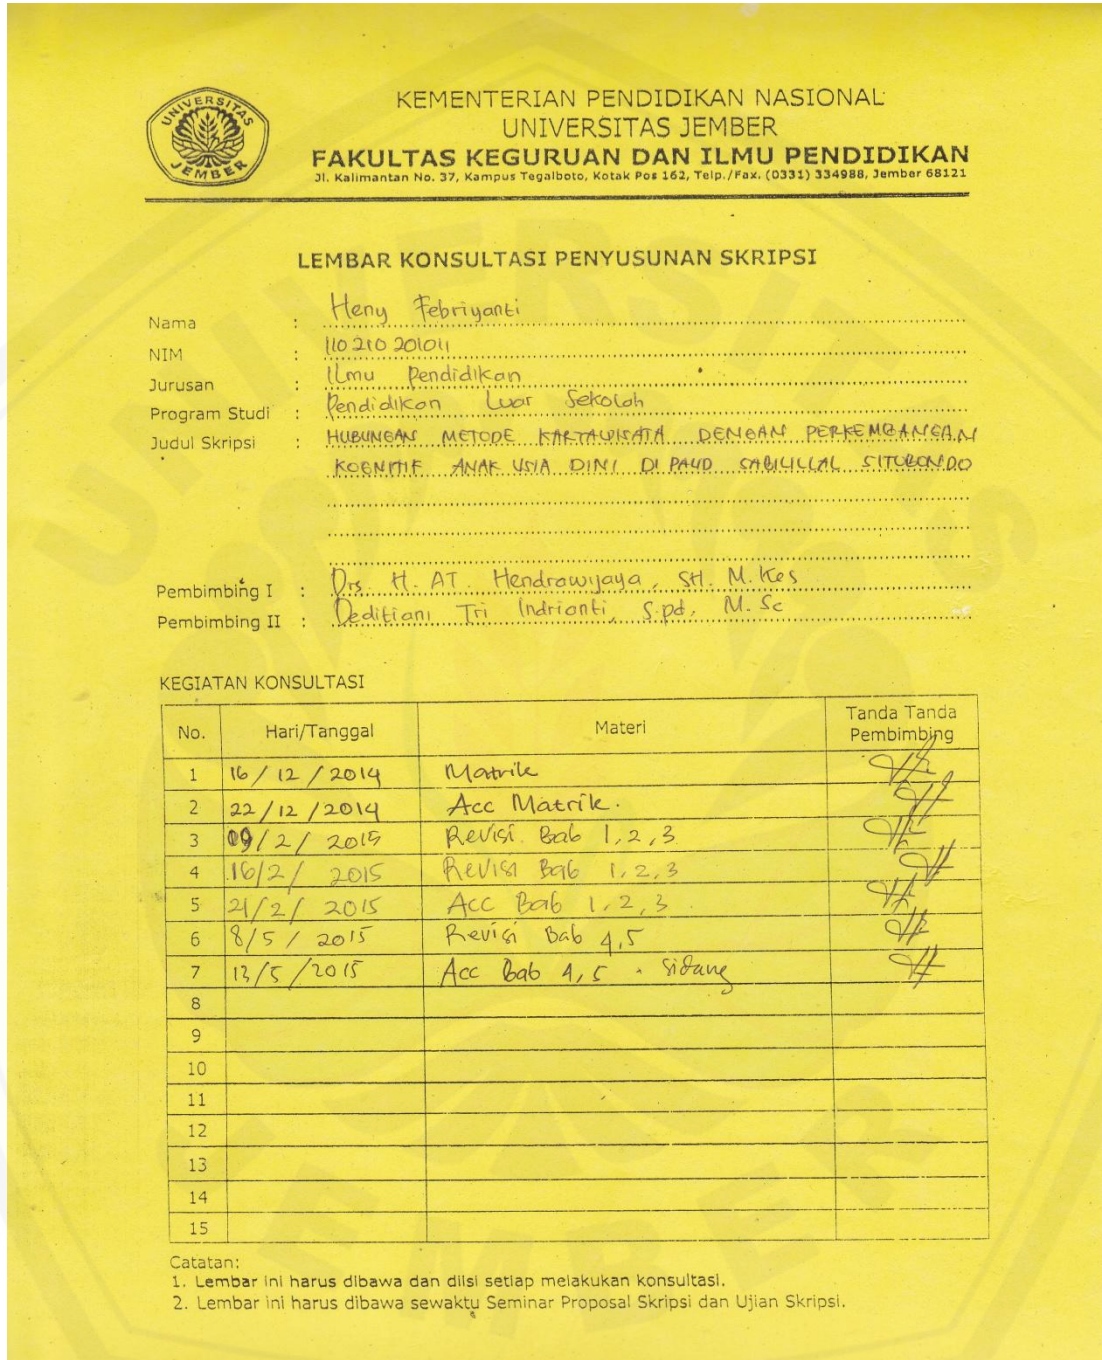 UNIVERSITAS JEMBER
KEMENTERIAN PENDIDIKAN NASIONAL
UNIVERSITAS JEMBER
FAKULTAS KEGURUAN DAN ILMU PENDIDIKAN
Jl. Kalimantan No. 37, Kampus Tegalboto, Kotak Pos 162, Telp./Fax. (0331) 334988, Jember 68121
LEMBAR KONSULTASI PENYUSUNAN SKRIPSI
Nama : Heny Febriyanti
NIM : 110210201011
Jurusan : Ilmu Pendidikan
Program Studi : Pendidikan Luar Sekolah
Judul Skripsi : HUBUNGAN METODE KARYAWISATA DENGAN PERKEMBANGAN
KOGNITIF ANAK USIA DINI DI PAUD SITUBONDO
Pembimbing I : Drs. H. AT. Hendrawijaya, SH. M. Kes
Pembimbing II : Deditiani Tri Indrianti, S.pd, M. Sc
KEGIATAN KONSULTASI
No. Hari/Tanggal Materi Tanda Tanda Pembimbing
1 16/12/2014 Matrik
2 22/12/2014 Acc Matrik.
3 09/2/2015 Revisi Bab 1,2,3
4 16/2/2015 Revisi Bab 1,2,3
5 21/2/2015 Acc Bab 1,2,3.
6 8/5/2015 Revisi Bab 4,5
7 13/5/2015 Acc Bab 4,5 . Sidang
8
9
10
11
12
13
14
15
Catatan:
1. Lembar ini harus dibawa dan diisi setiap melakukan konsultasi.
2. Lembar ini harus dibawa sewaktu Seminar Proposal Skripsi dan Ujian Skripsi.